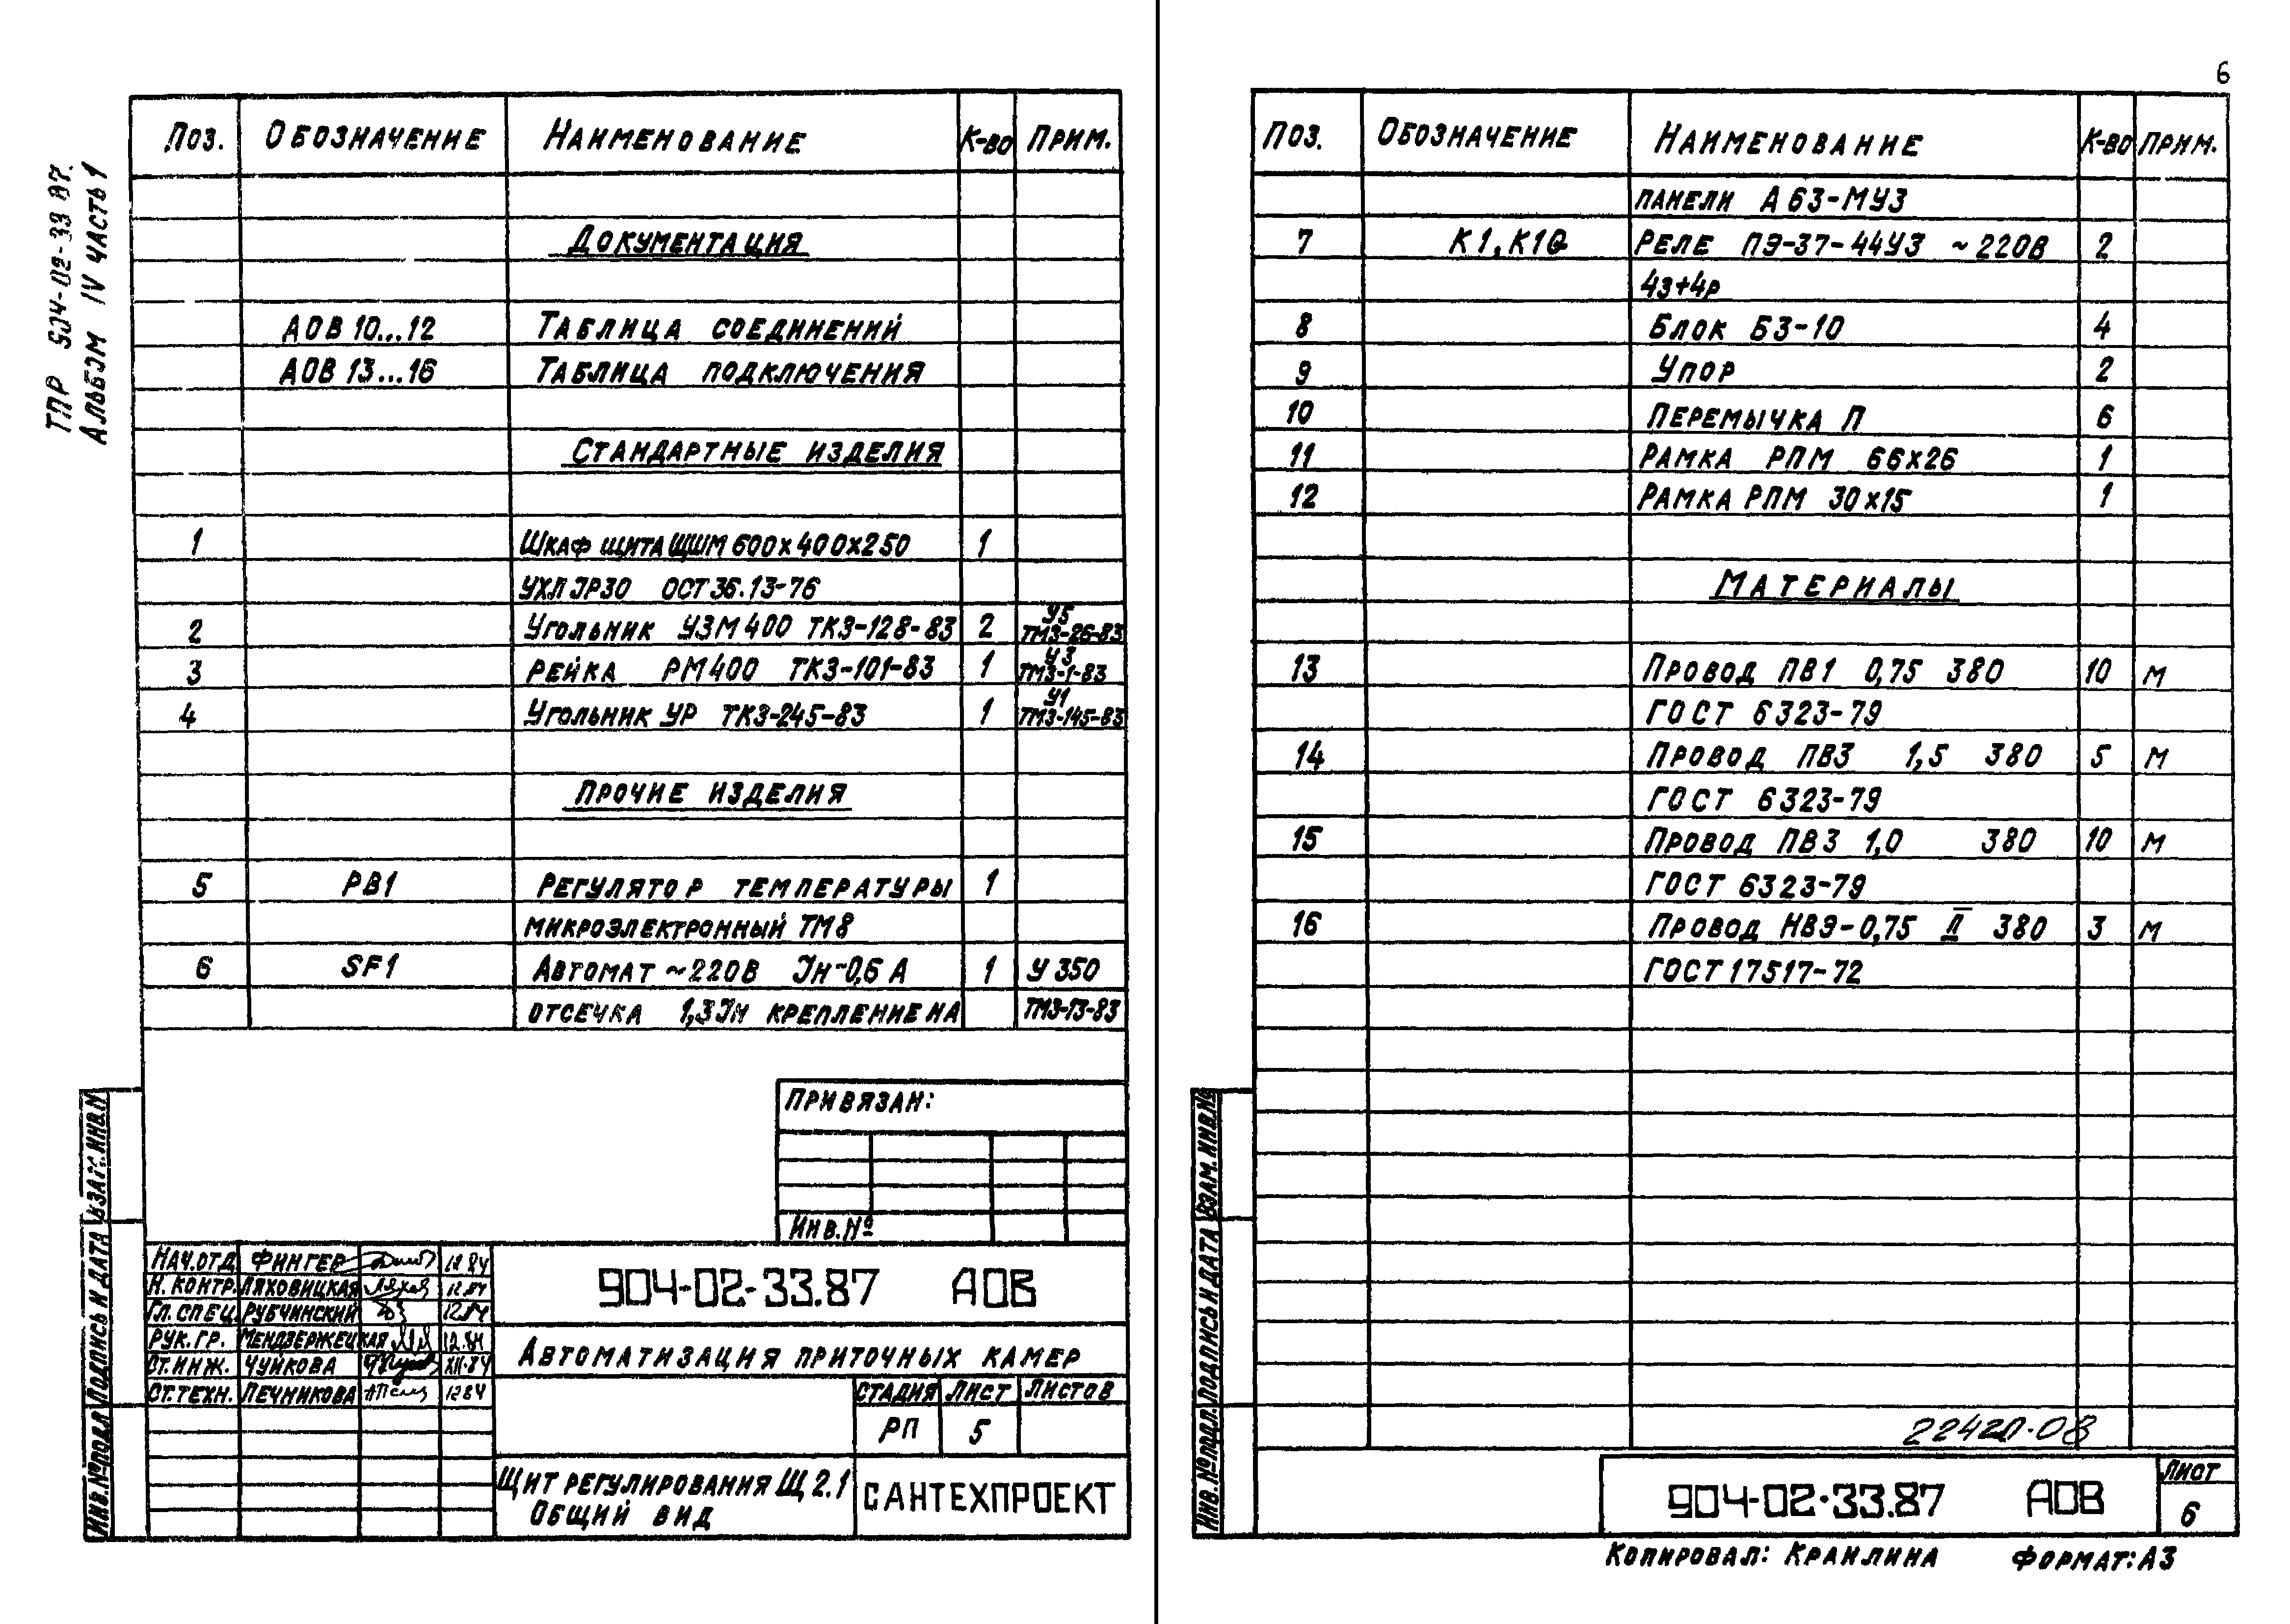 6
ТПР 904-02-33.87.
Альбом IV часть 1
Поз. Обозначение Наименование К-во Прим.
Документация
АОВ 10...12 Таблица соединений
АОВ 13...16 Таблица подключения
Стандартные изделия
1 Шкаф щита ЩШМ 600х400х250 1
УХЛ JР30 ОСТ 36.13-76
2 Угольник УЗМ 400 ТКЗ-128-83 2 У5 ТМЗ-26-83
3 Рейка РМ400 ТКЗ-101-83 1 У3 ТМЗ-1-83
4 Угольник УР ТКЗ-245-83 1 У1 ТМЗ-145-83
Прочие изделия
5 РВ1 Регулятор температуры 1
микроэлектронный ТМ8
6 SF1 Автомат ~220В Jн-0,6 А 1 У 350
отсечка 1,3Jн крепление на ТМЗ-13-83
Привязан:
Инв.№
Нач.отд. Фингер 12.84
Н. контр. Ляховицкая 12.84
Гл. спец. Рубчинский 12.84
Рук. гр. Мендзержецкая 12.84
Ст. инж. Чуйкова XII.84
Ст. техн. Печникова 12 84
904-02-33.87 АОВ
Автоматизация приточных камер
Стадия Лист Листов
РП 5
Щит регулирования Щ 2.1
Общий вид
САНТЕХПРОЕКТ
Инв.№подл. Подпись и дата Взам. инв.№
Поз. Обозначение Наименование К-во Прим.
панели А 63-МУ3
7 К1, К10 Реле ПЭ-37-44У3 ~220В 2
4з+4р
8 Блок БЗ-10 4
9 Упор 2
10 Перемычка П 6
11 Рамка РПМ 66х26 1
12 Рамка РПМ 30х15 1
Материалы
13 Провод ПВ1 0,75 380 10 м
ГОСТ 6323-79
14 Провод ПВ3 1,5 380 5 м
ГОСТ 6323-79
15 Провод ПВ3 1,0 380 10 м
ГОСТ 6323-79
16 Провод НВЭ-0,75 II 380 3 м
ГОСТ 17517-72
22420-08
Инв.№подл. Подпись и дата Взам. инв.№
904-02-33.87 АОВ
Лист
6
Копировал: Кранлина Формат: А3